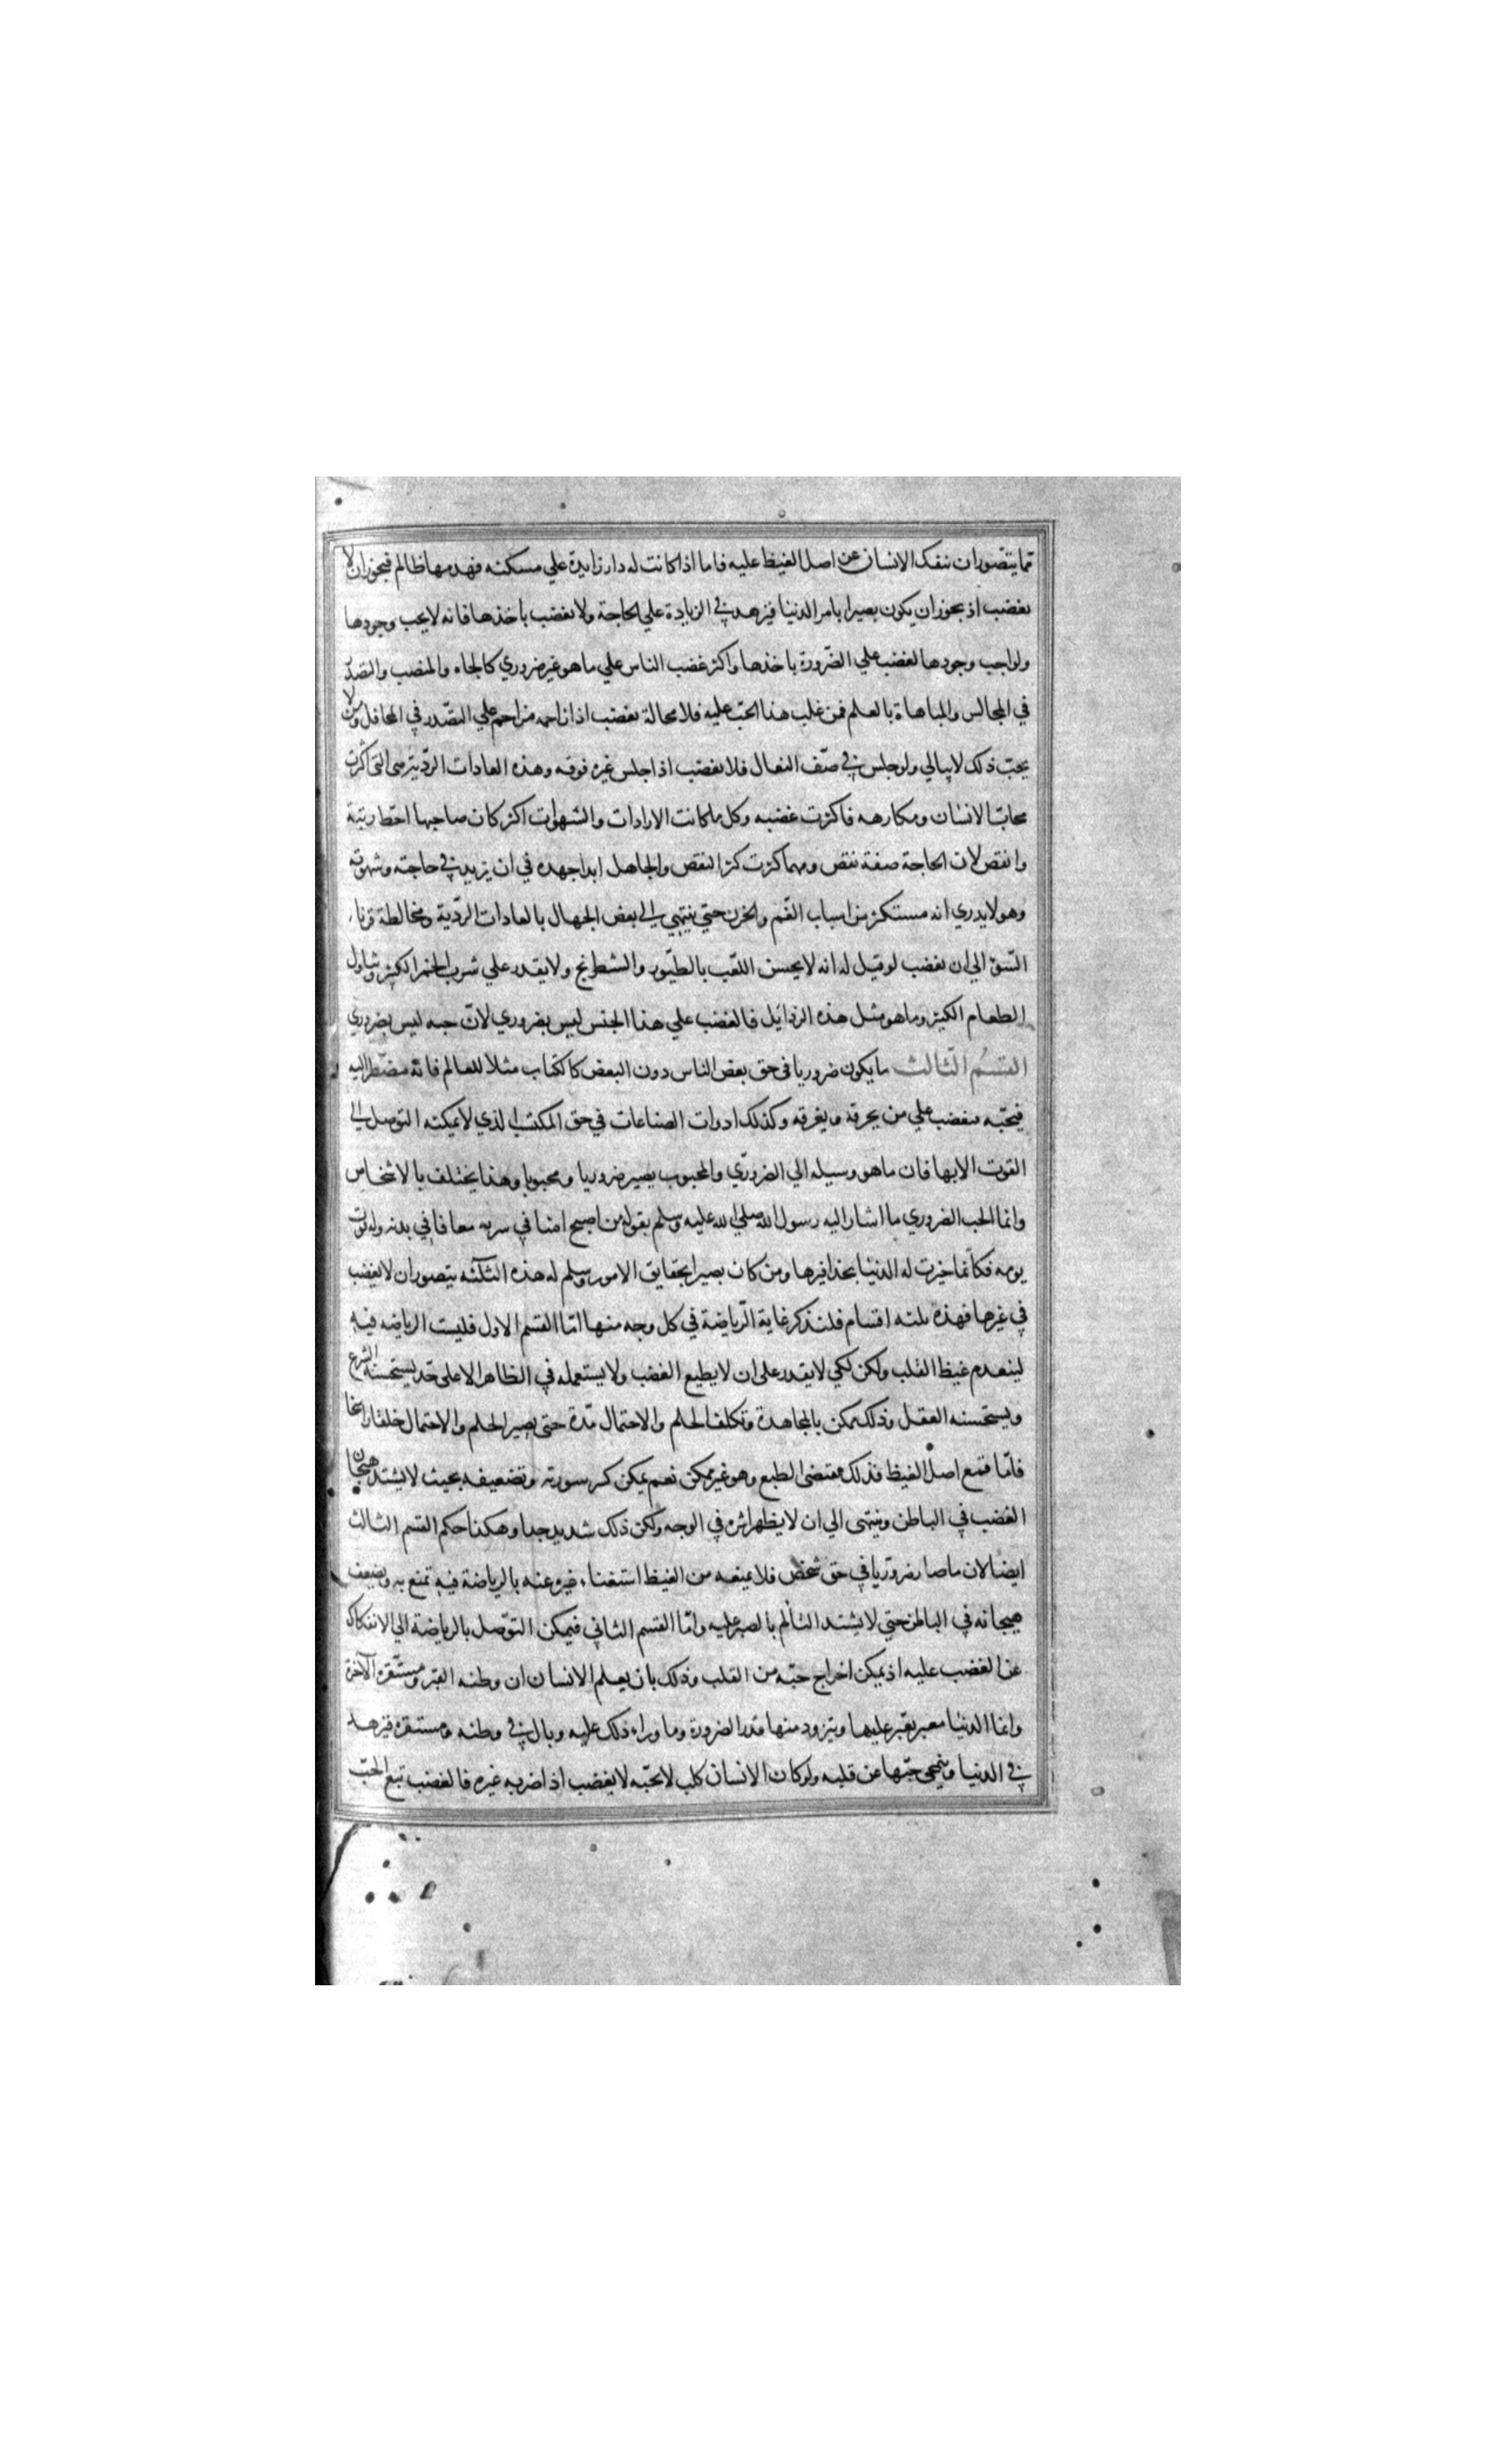 مما يتصور ان ينفك الانسان عن اصل الغيظ عليه فاما اذا كانت له دار زايدة علي مسكنه فهدمها ظالم فيجوز ان لا
يغضب اذ يجوز ان يكون بصيرا بامر الدنيا فيزهد في الزيادة علي الحاجة ولا يغضب باخذها فانه لا يحب وجودها
ولو احب وجودها لغضب علي الضرورة باخذها واكثر غضب الناس علي ما هو غير ضروري كالجاه والمنصب والتصدر
في المجالس والمباهاة بالعلم فمن غلب هذا الحب عليه فلا محالة يغضب اذا زاحمه مزاحم علي التصدر في المحافل ومن لا
يحب ذلك لا يبالي ولو جلس في صف النعال فلا يغضب اذا جلس غيره فوقه وهذه العادات الردية هي التي اكثرت
محاب الانسان ومكارهه فاكثرت غضبه وكل ما كانت الارادات والشهوات اكثر كان صاحبها احط رتبة
وانقص لان الحاجة صفة نقص ومهما كثرت كثر النقص والجاهل ابدا جهده في ان يزيد في حاجته وشهوته
وهو لا يدري انه مستكثر من اسباب الغم والحزن حتي ينتهي الي بعض الجهال بالعادات الردية ومخالطة قرناء
السؤ الي ان يغضب لو قيل له انه لا يحسن اللعب بالطيور والشطرنج ولا يقدر علي شرب الخمر الكثير وتناول
الطعام الكثير وما هو مثل هذه الرذايل فالغضب علي هذا الجنس ليس بضروري لان حبه ليس بضروري
القسم الثالث ما يكون ضروريا في حق بعض الناس دون البعض كالكتاب مثلا للعالم فانه مضطر اليه
فيحبه فيغضب علي من يحرقه ويغرقه وكذلك ادوات الصناعات في حق المكتسب الذي لا يمكنه التوصل الي
القوت الا بها فان ما هو وسيله الي الضروري والمحبوب يصير ضروريا ومحبوبا وهذا يختلف بالاشخاص
وانما الحب الضروري ما اشار اليه رسول الله صلي الله عليه وسلم بقوله من اصبح امنا في سربه معافا في بدنه وله قوت
يومه فكانما خيرت له الدنيا بحذافيرها ومن كان بصيرا بحقايق الامور وسلم له هذه الثلثه يتصور ان لا يغضب
في غيرها فهذه ثلثه اقسام فلنذكر غاية الرياضة في كل وجه منها اما القسم الاول فليست الرياضه فيه
لينعدم غيظ القلب ولكن لكي لا يقدر علي ان لا يطيع الغضب ولا يستعمله في الظاهر الا علي حد يستحسنه الشرع
ويستحسنه العقل وذلك يمكن بالمجاهدة وتكلف الحلم والاحتمال مدة حتي يصير الحلم والاحتمال خلقا راسخا
فاما قمع اصل الغيظ فذلك مقتضي الطبع وهو غير ممكن نعم يمكن كسر سورته وتضعيفه بحيث لا يشتد هيجان
الغضب في الباطن وينتهي الي ان لا يظهر اثره في الوجه ولكن ذلك شديد جدا وهكذا حكم القسم الثالث
ايضا لان ما صار ضروريا في حق شخص فلا يمنعه من الغيظ استغناء غيره عنه بالرياضة فيه تمنع به ويضعف
هيجانه في الباطن حتي لا يشتد التالم بالصبر عليه واما القسم الثاني فيمكن التوصل بالرياضة الي الانفكاك
عن الغضب عليه اذ يمكن اخراج حبه من القلب وذلك بان يعلم الانسان ان وطنه القبر ومستقره الآخرة
وانما الدنيا معبر يعبر عليها ويتزود منها قدر الضرورة وما وراء ذلك عليه وبال في وطنه ومستقره فيزهد
في الدنيا وينمحي حبها عن قلبه ولو كان الانسان كلب لا يحبه لا يغضب اذا ضربه غيره فالغضب تبع الحب